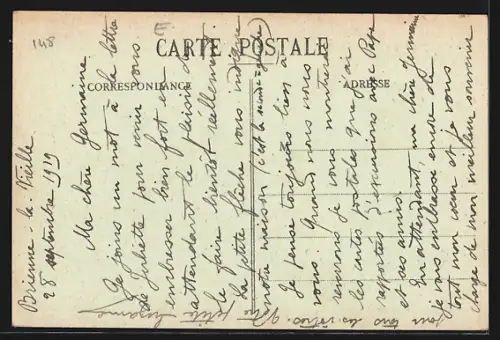 145
CARTE POSTALE
CORRESPONDANCE
ADRESSE
Brienne-la-Vieille
28 septembre 1919
Ma chère Germaine
Je joins un mot à la lettre
de Juliette pour venir vous
embrasser bien fort en
attendant le plaisir de
le faire bientôt réellement
La petite flèche vous indique
notre maison (c'est la seconde à gauche)
Je pense toujours bien à
vous. Quand nous nous
reverrons je vous montrerai
les cartes postales que j'ai
rapportées d'excursions avec Papa
et ses amis.
En attendant ma chère Germaine
je vous embrasse encore de
tout mon cœur et je vous
charge de mon meilleur souvenir
pour tous les vôtres. Votre petite Suzanne